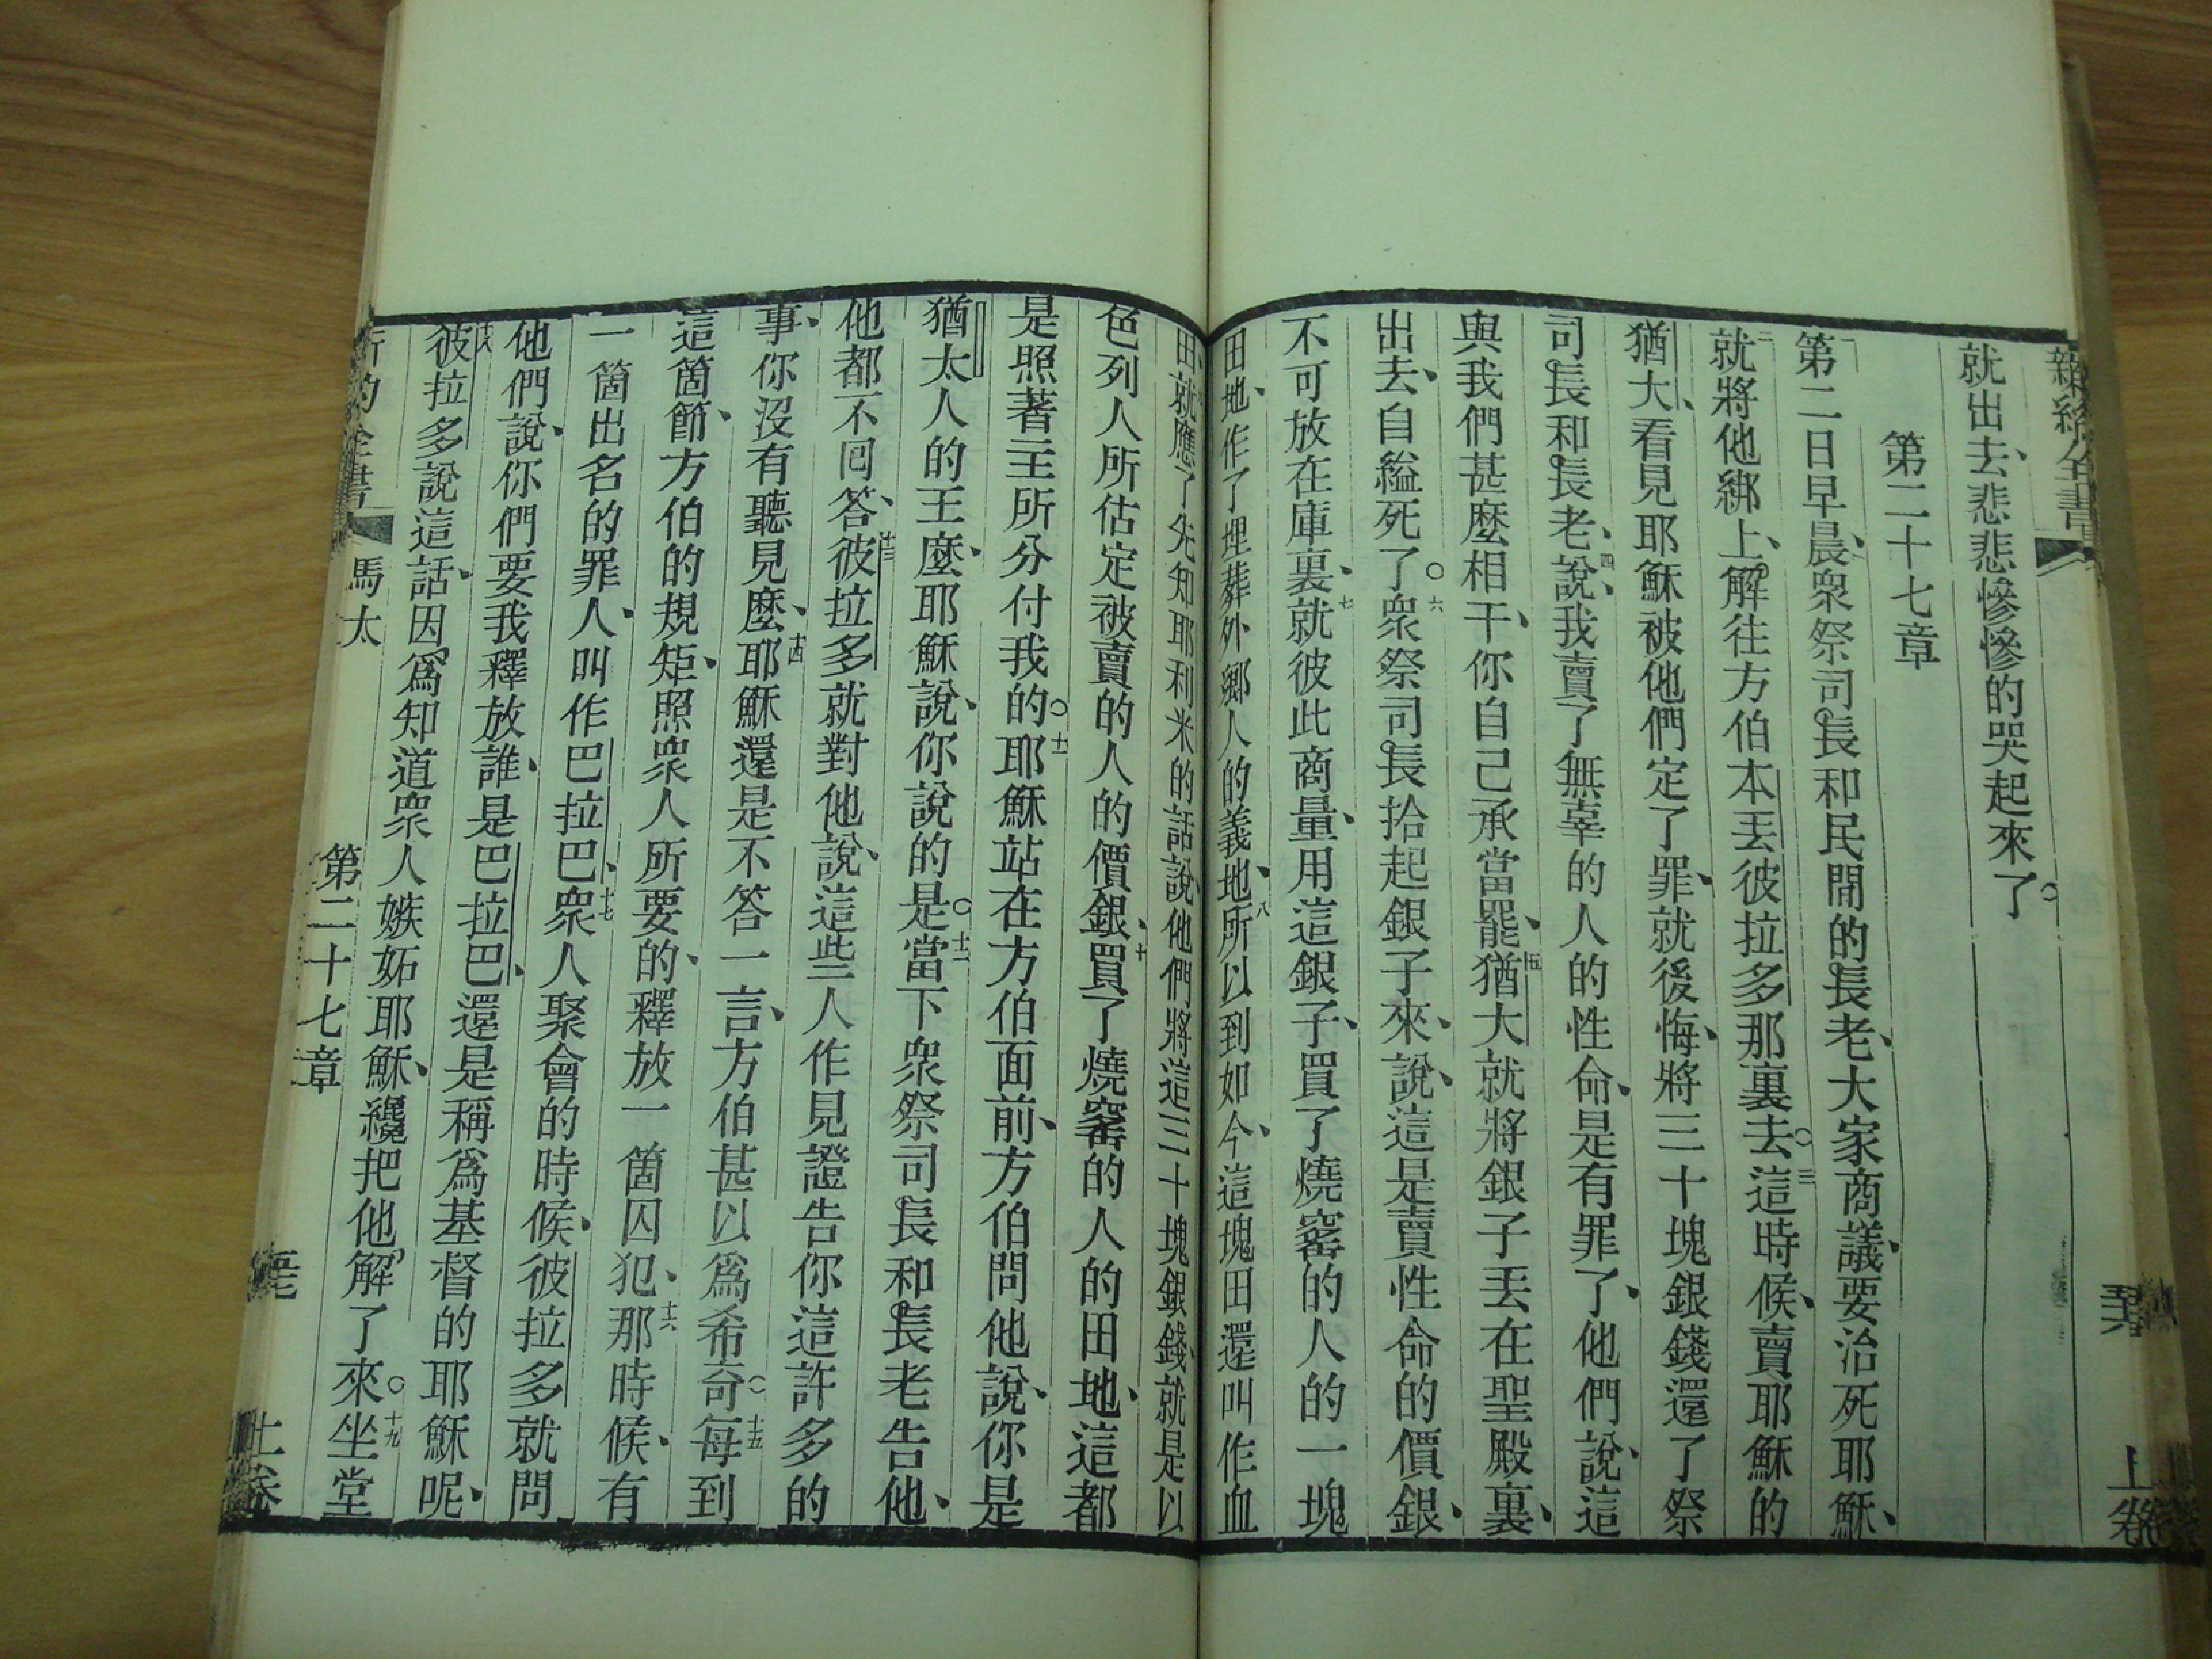 新約全書
上卷
就出去、悲悲慘慘的哭起來了。
第二十七章
一第二日早晨、衆祭司長和民閒的長老、大家商議、要治死耶穌、
二就將他綁上、解往方伯本丟彼拉多那裏去。三這時候、賣耶穌的
猶大、看見耶穌被他們定了罪、就後悔、將三十塊銀錢還了祭
司長和長老、四說、我賣了無辜的人的性命、是有罪了、他們說、這
與我們甚麼相干、你自己承當罷、五猶大就將銀子丟在聖殿裏、
出去、自縊死了。六衆祭司長拾起銀子來、說、這是賣性命的價銀、
不可放在庫裏、七就彼此商量、用這銀子、買了燒窰的人的一塊
田地、作了埋葬外鄉人的義地、八所以到如今、這塊田還叫作血
田、就應了先知耶利米的話說、他們將這三十塊銀錢、就是以
色列人所估定被賣的人的價銀、十買了燒窰的人的田地、這都
是照著主所分付我的。十一耶穌站在方伯面前、方伯問他說、你是
猶太人的王麼、耶穌說、你說的是。十二當下衆祭司長和長老告他、
他都不回答、十三彼拉多就對他說、這些人作見證告你這許多的
事、你沒有聽見麼、十四耶穌還是不答一言、方伯甚以爲希奇。十五每到
這箇節、方伯的規矩、照衆人所要的、釋放一箇囚犯、十六那時候、有
一箇出名的罪人、叫作巴拉巴、十七衆人聚會的時候、彼拉多就問
他們說、你們要我釋放誰、是巴拉巴、還是稱爲基督的耶穌呢、
十八彼拉多說這話、因爲知道衆人嫉妬耶穌、纔把他解了來。十九坐堂
新約全書
馬太
第二十七章
上卷